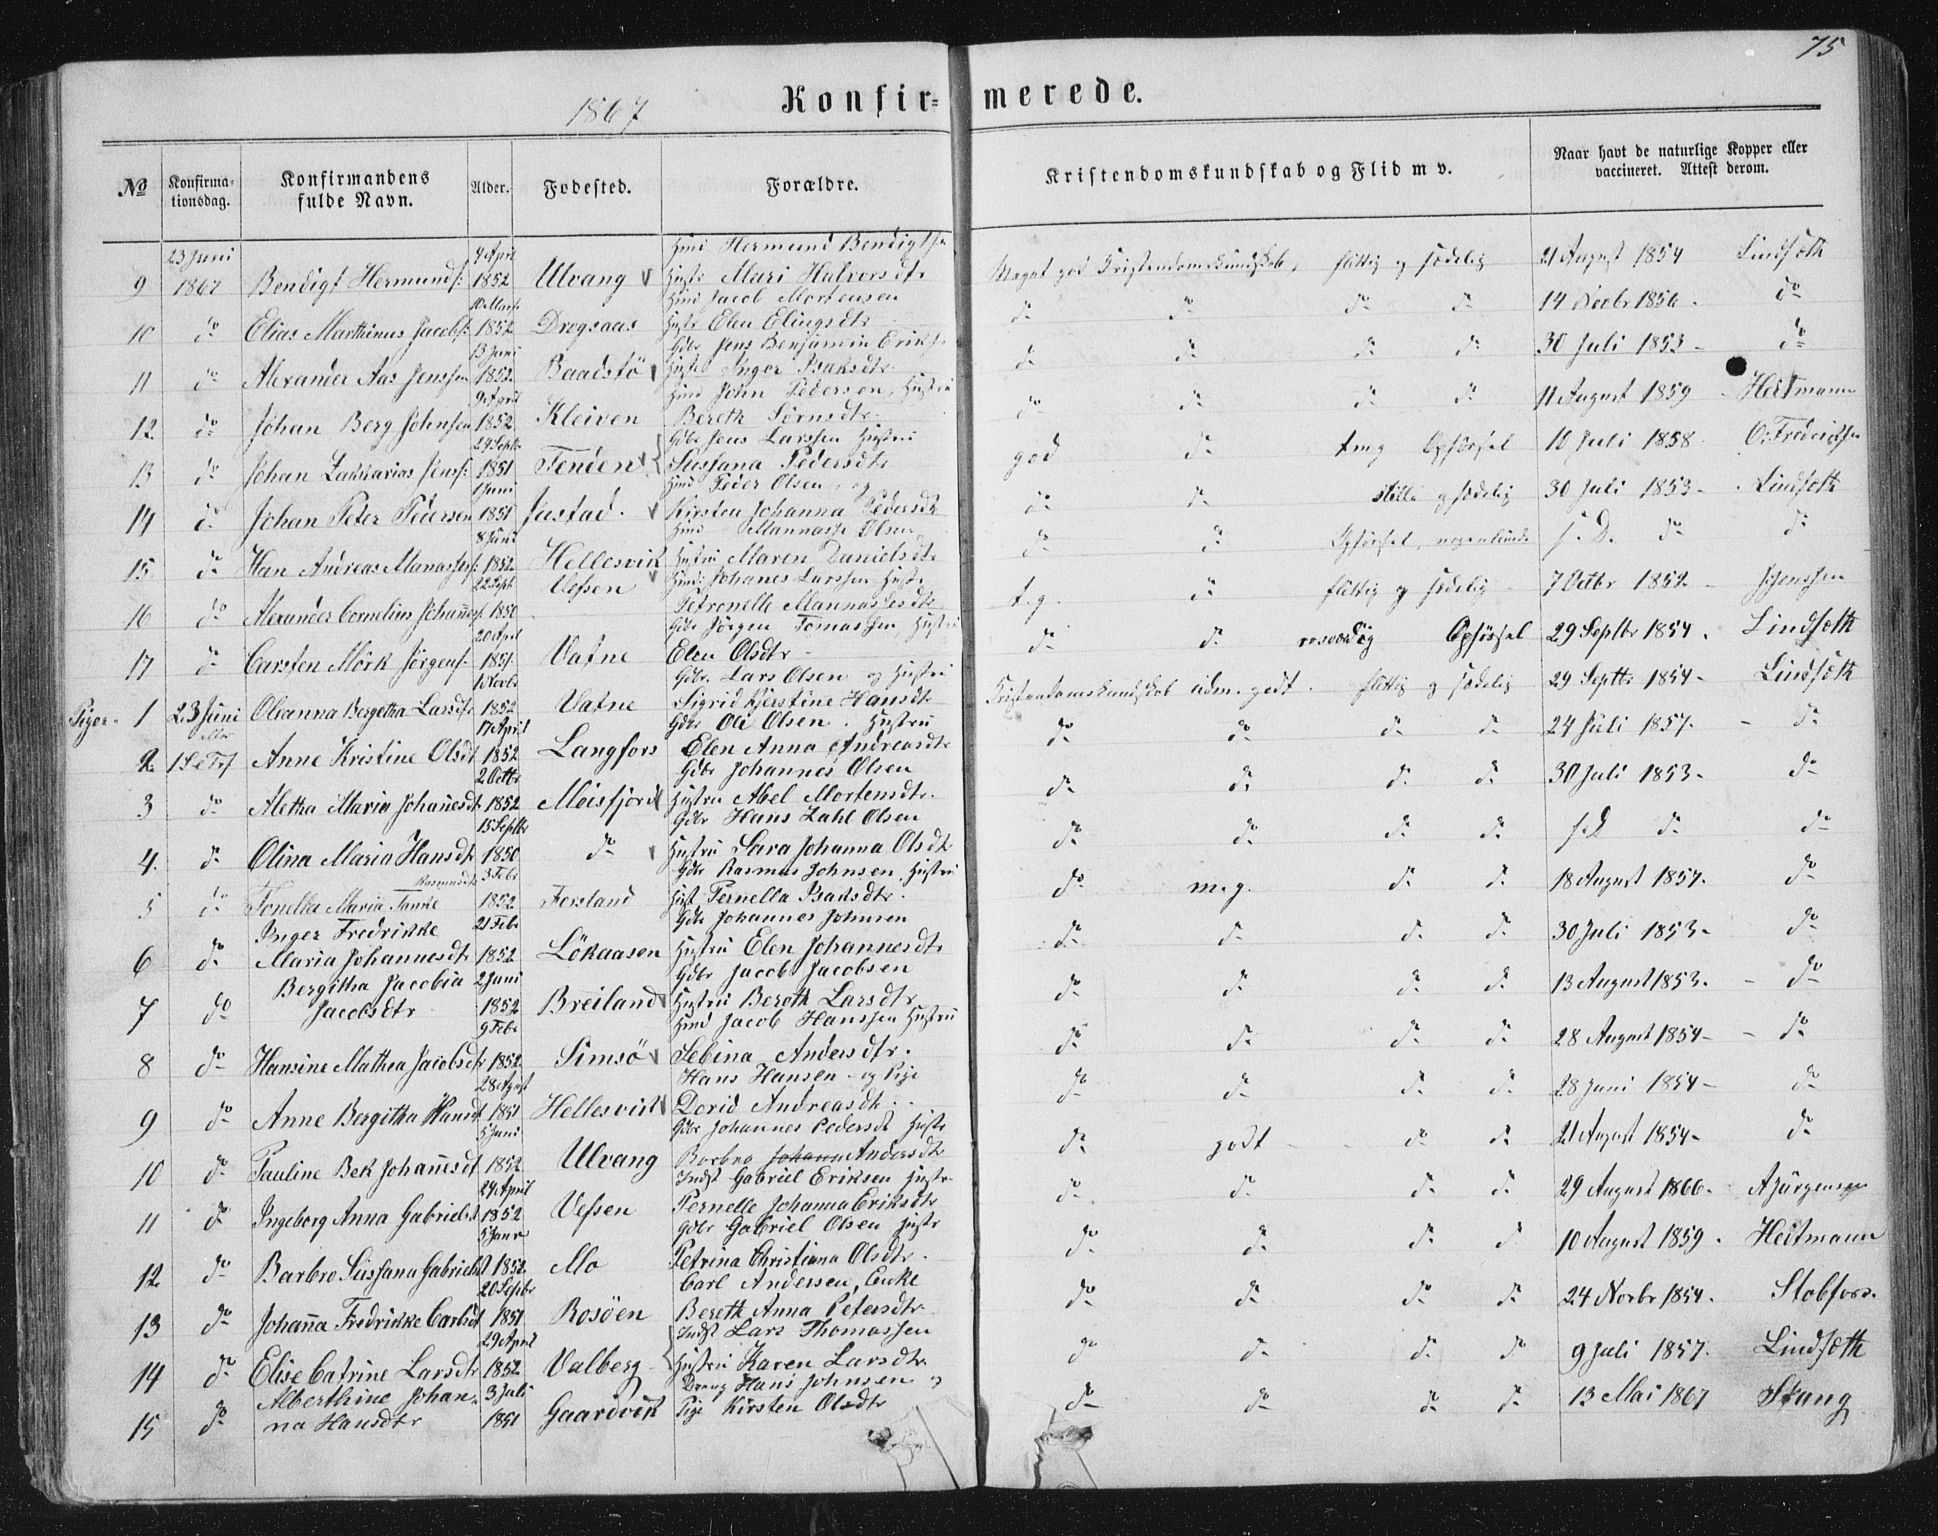 75
1867
Konfir- merede.
No
Konfirma-
tionsdag.
Konfirmandens
fulde Navn.
Alder.
Fødested.
Forældre.
Kristendomskundskab og Flid m v.
Naar havt de naturlige Kopper eller
vaccineret. Attest derom.
23 Juni 4 April Huus Hermund Bendigtsen
9 1867 Bendigt Hermunds: 1852 Ulvang Hustr Mari Halvorsdtr Meget god Kristendomskundskab, flittig og sædelig 21 August 1854 Lindseth
10 Marts Huus Jacob Mortensen
10 do Elias Marthinus Jacobs: 1852 Drogsaas Hustr Elen Elingsdtr do do do do 14 Novbr 1856. do
13 Juni Gdbr Jens Benjamin Eriks
11 do Alexander Aas Jenssen 1852 Baadstø Hustr Inger Isaksdtr do do do do 30 Juli 1853 - do
9 April Huus John Pedersen, Hustru
12 do Johan Berg Johnsen 1852 Kleiven Bereth Sørnsdtr do do do do 11 August 1859 - Heitmann
24 Septbr Gdbr Jens Larssen Hustru
13 do Johan Zakkarias Jens: 1851 Tenden Sussana Pedersdtr god do tmg Opførsel 10 Juli 1858 O: Fredriksen
1 Juni Huus Peder Olsen, og
14 do Johan Peter Pedersen 1851 Justad. Kirsten Johanna Pedersdtr do do stille og sædelig 30 Juli 1853 - Lindseth
8 Juni Huus Mannasse Olsen
15 do Han Andreas Manasses: 1852 Hellesvik Hustru Maren Danielsdtr do do Opførsel, nogenlunde s. D. do do
22 Sept Huus: Johanes Larssen Hustr
16 do Alexander Cornelius Johannes: 1850 Vefsen Petronelle Mannassesdtr t.g. do flittig og sædelig 7 Octbr 1852 - Jenssen
20 April Gdbr Jørgen Tomassen Hustru
17 do Carsten Mörk Jörgens: 1851 Vatne Elen Olsdtr - do do rosværdig Opførsel 29 Septbr 1854. Lindseth
1 Novbr Gdbr Lars Olsen og Hustru
Piger. 1 23 Juni Oleanna Bergetha Larsdtr 1852 Vatne Sigrid Kjerstine Hansdtr Kristendomskundskab udm. godt. flittig og sædelig 29 Septbr 1854 - Lindseth
17 April Gdbr Ole Olsen. Hustru
2 Anne Kristine Olsdt 1852 Langfors Elen Anna Andreasdtr do do do do 24 Juli 1857. - do
2 Octbr Gdbr Johannes Olsen
3 do Aletha Maria Johanesdt 1852 Meisfjord Hustru Abel Mortensdtr. do do do do 30 Juli 1853. do
15 Septbr Gdbr Hans Zahl Olsen
4. do Olina Maria Hansdtr 1850 do Hustru Sara Johanna Olsdtr do do do do s. D do do
Rasmusdtr 3 Febr Gdbr Rasmus Johnsen, Hustru
5 do Tonetta Maria Tanke 1852 Forsland Hust Pernella Isaksdtr. do m.g. do do 18 August 1857. do
Inger Fredrikke 21 Febr Gdbr Johannes Johnsen
6 do Maria Johannesdtr 1852 Lökaasen Hustru Elen Johannesdtr do do do do 30 Juli 1853. do
Bergitha Jacobia 2 Juni Gdbr Jacob Jacobsen
7 do Jacobsdtr 1852 Breiland Hustru Bereth Larsdtr do do do do 13 August 1853. - do
9 Febr Huus Jacob Hanssen Hustru
8 do Hansine Mathea Jacobsdtr 1852 Simsö Sebina Andersdtr. do do do do 28 August 1854 - - do
28 Agust Hans Hansen - og Pige
9 do Anne Bergitha Hansdt 1851 Hellesvik Dorid Andreasdtr. do do do do 28 Juni 1854 - do
5 Juni Gdbr Johannes Pedersdt Hustr
10 do Pauline Bek Johanesdt 1852 Ulvang Barbro Johann Andersdtr do godt do do 21 August 1854 - do
24 April Indst Gabriel Eriksen Hustr
11 do Ingeborg Anna Gabrielsd 1852 Vefsen Pernelle Johanna Eriksdtr do do do do 29 August 1866. A Jürgensen
5 Janr Gdbr Gabriel Olsen Hustr
12 do Barbro Süssana Gabrielsd 1852 Mo Petrina Christiana Olsdtr. do do do do 10 August 1859. Heitmann
20 Septbr Carl Andersen, Enke
13 do Johana Fredrikke Carlsdt 1851 Rosöen Bereth Anna Petersdtr do do do do 24 Novbr 1854. Stobfors.
29 April Indst Lars Thomassen
14 do Elise Catrine Larsdtr 1852 Valberg Hustru Karen Larsdtr do do do do 9 Juli 1857. Lindseth
Alberthine Johan- 3 Juli Hans Johnsen og
15 do na Hansdtr 1851 Gaardvik Pige Kirsten Olsdtr do do do do 13 Mai 1867 Stang